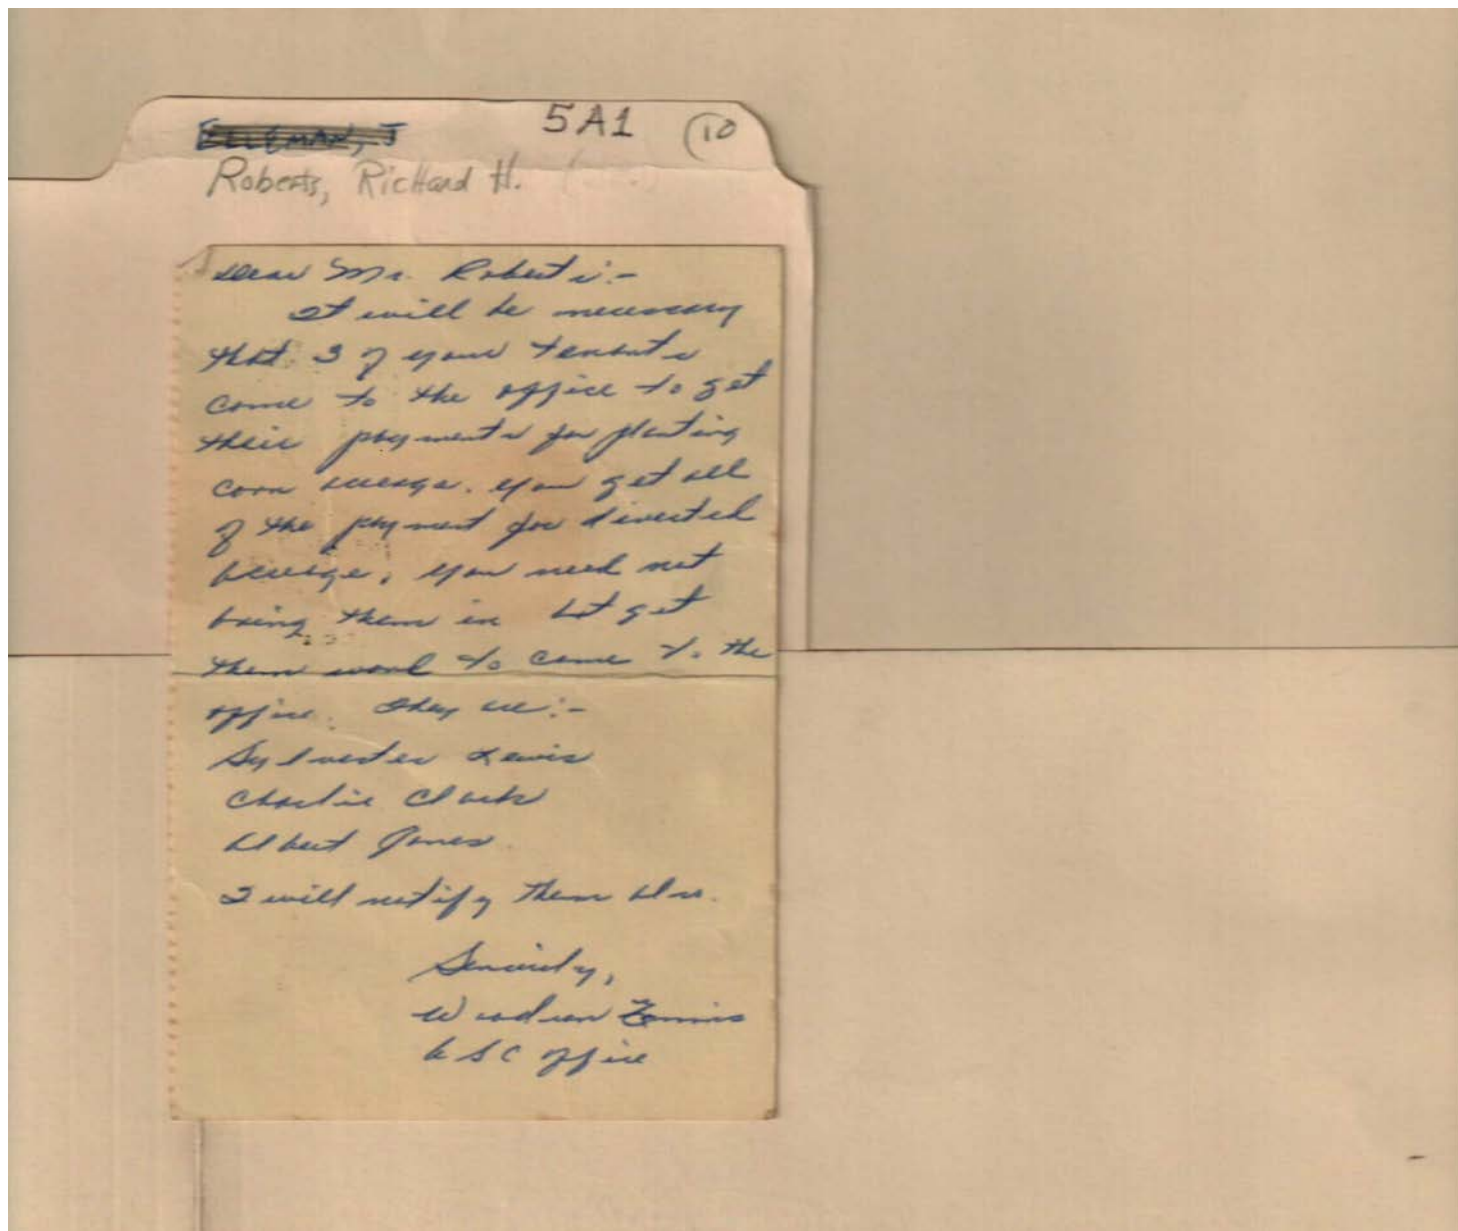 ELLEMAN, J
5A1
10
Roberts, Richard H.
Dear Mr. Roberts:-
It will be necessary
that 3 of your tenants
come to the office to get
their payments for planting
corn acreage. you get all
of the payment for diverted
acreage, you need not
bring them in but get
them word to come to the
office. They are:-
Sylvester Lewis
Charlie Clark
Albert Jones
I will notify them also.
Sincerely,
Woodrow
ASC office